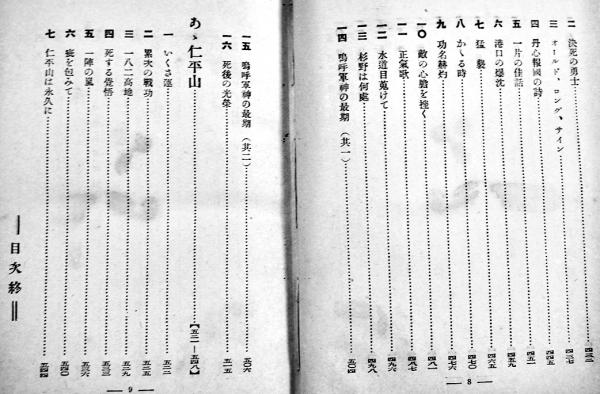 二 決死の勇士
三 オールド、ロング、サイン……四三七
四 丹心報國の詩……四四五
五 一片の佳話
六 港口の爆沈……四五九
七 猛襲……四六五
八 かくる時……四七〇
九 功名赫灼……四七六
一〇 敵の心膽を挫く……四八一
一一 正氣歌……四八七
一二 水道目蒐けて
一三 杉野は何處……四九八
一四 嗚呼軍神の最期(其一)……五〇四
— 8 —
一五 嗚呼軍神の最期(其二)……五〇六
一六 死後の光榮……五一五
あゝ仁平山……【五二一—五四八】
一 いくさ運
二 累次の戰功……五二五
三 一八二高地……五二九
四 死する覺悟……五三三
五 一陣の嵐……五三六
六 疵を包みて……五四〇
七 仁平山は永久に……五四四
目次終
— 9 —